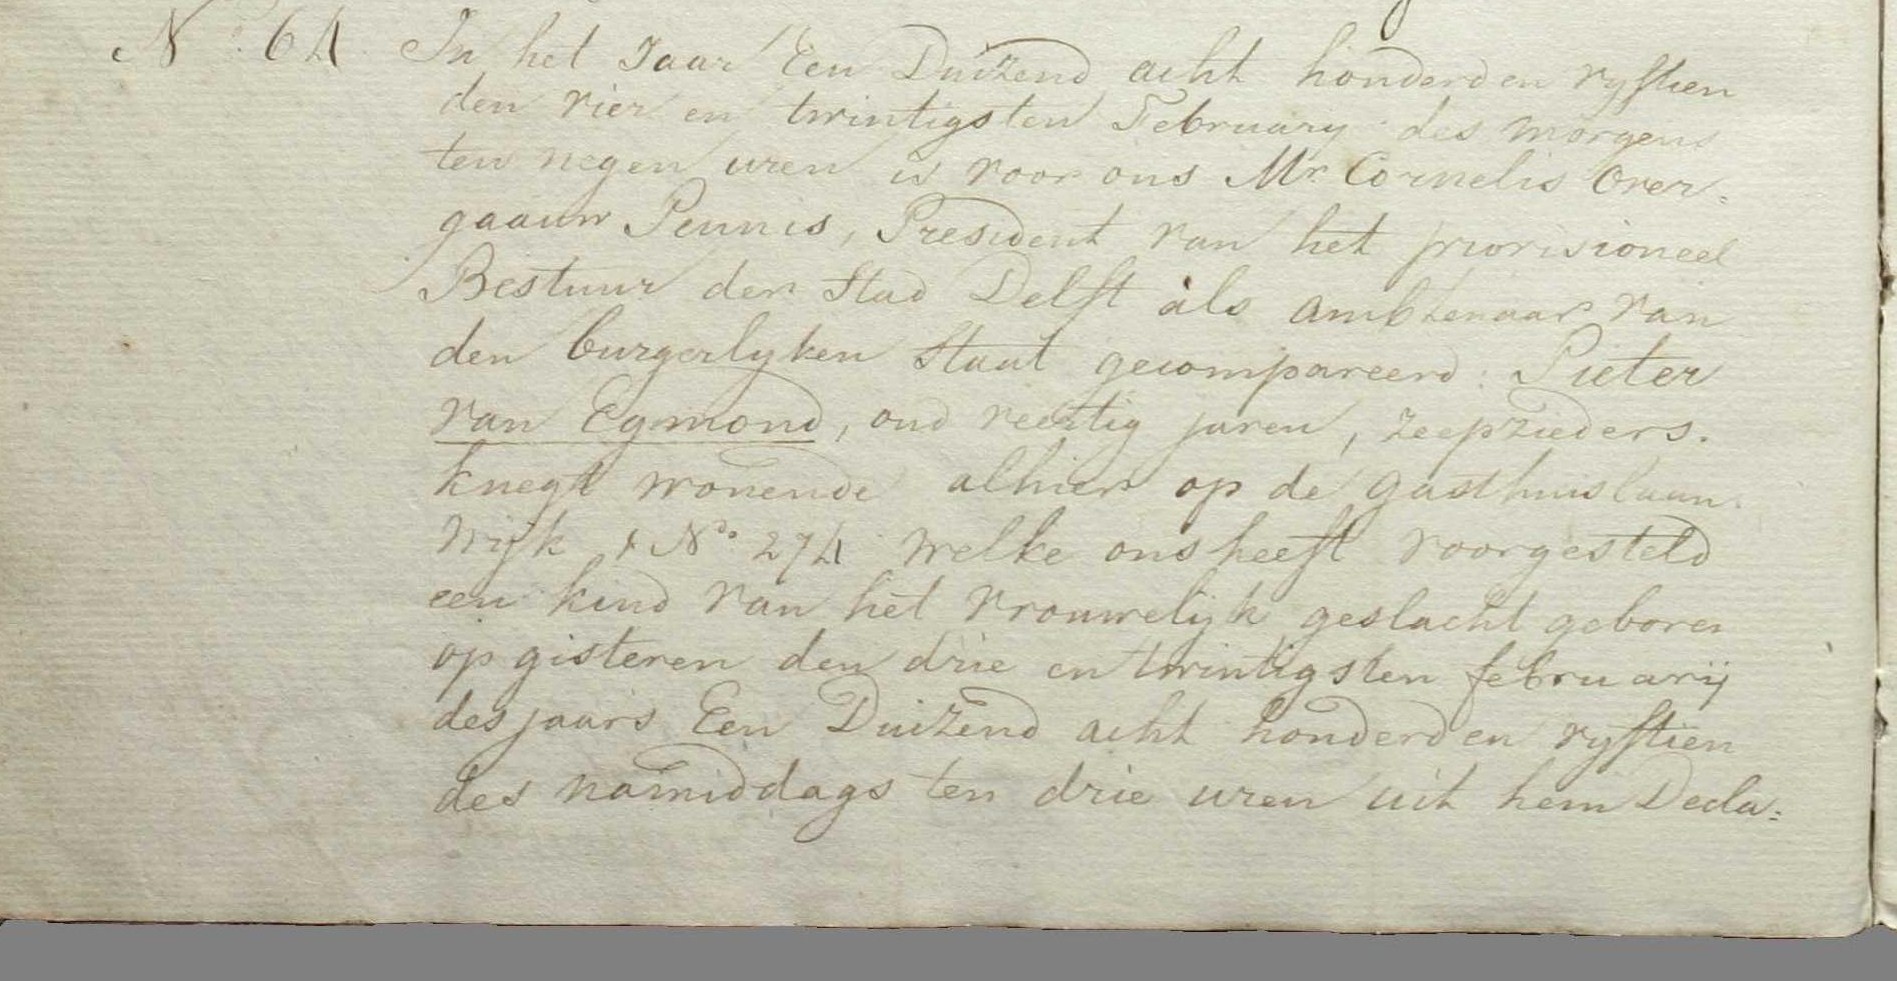 No. 64 In het Jaar Een Duizend acht honderd en vyftien
den vier en twintigsten February des morgens
ten negen uren is voor ons Mr. Cornelis Over-
gaauw Pennis, President van het provisioneel
Bestuur der Stad Delft als ambtenaar van
den burgerlyken Staat gecompareerd: Pieter
van Egmond, oud veertig jaren, zeepzieders.
knegt wonende alhier op de Gasthuislaan.
Wijk No. 274 welke ons heeft voorgesteld
een kind van het vrouwelijk geslacht geboren
op gisteren den drie en twintigsten februarij
des jaars Een Duizend acht honderd en vyftien
des namiddags ten drie uren uit hem Decla=